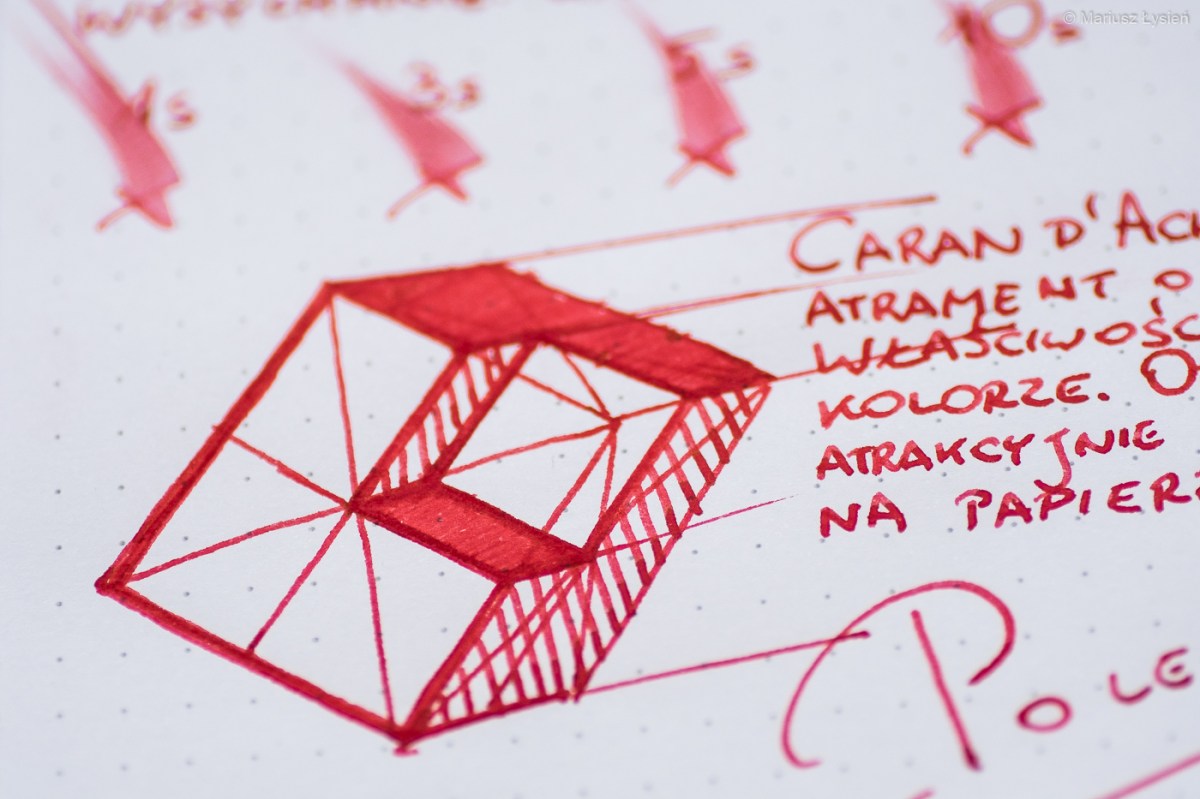 © Mariusz Łysień
1s
3s
5s
10s
CARAN D'ACH
ATRAMENT O
WŁAŚCIWOŚC
KOLORZE. O
ATRAKCYJNIE
NA PAPIERZ
POLE